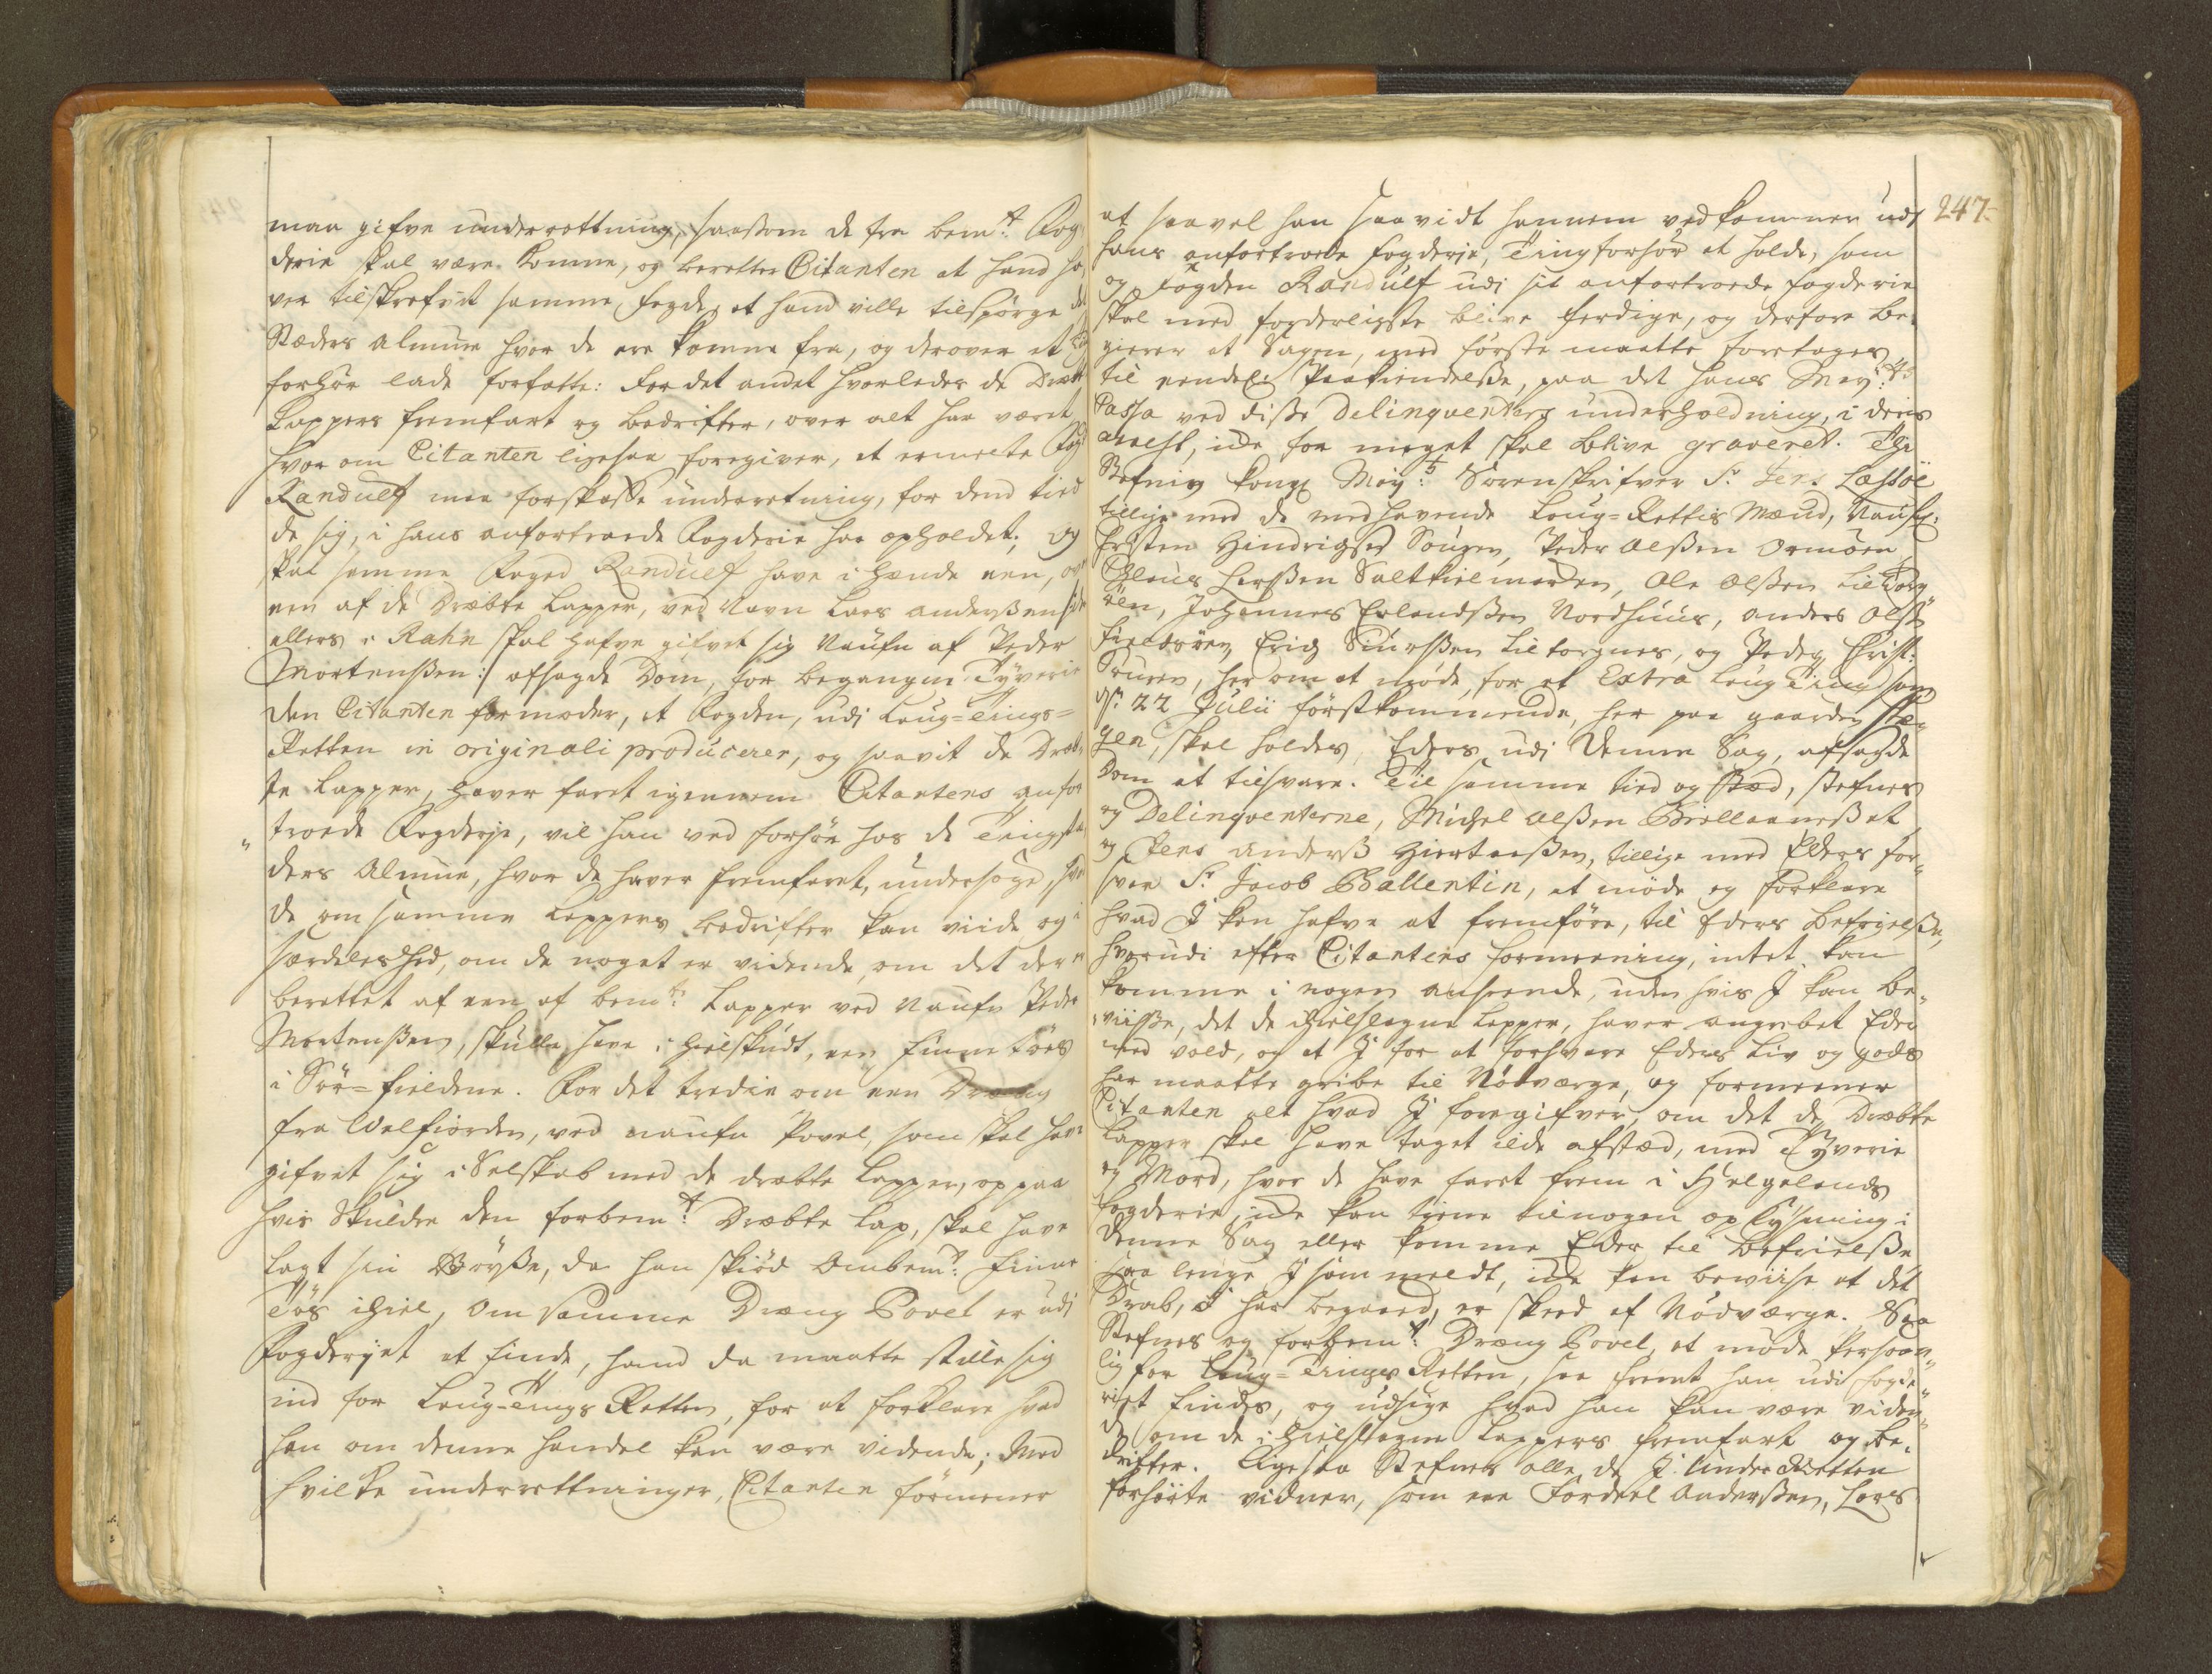 maa gifve underrettning, saasom de fra bem.te Fog
derie skal være komne, og beretter Citanten at hand ha
ver tilskrefvet samme fogde, at hand ville tilspörge de
Stæders almue hvor de ere komne fra, og derover et
forhör lade forfatte: For det andet hvorledes de Dræbte
Lappers fremfart og bedrifter, over alt har været
hvor om Citanten ligesaa foregiver, at ermelte Fog
Randulf maa forskaffe underretning, for dend tiid
de sig, i hans anfortroede Fogderie har opholdet; og
skal samme Foged Randulf have i hænde een, over
een af de Dræbte Lapper, ved Navn Lars Anderßen
ellers i Rahn skal hafve gifvet sig Naufn af Peder
Mortenßen:/ afsagde Dom, for begangne Tyverie
den Citanten formoder, at Fogden, udj Laug-Tings-
Retten in originali producerer, og saavit de Dræb-
te Lapper, haver faret igiennem Citantens anfor
troede Fogderje, vil han ved forhör hos de Tingstæ
ders Almue, hvor de haver fremfaret, undersöge, hvad
de om samme Lappers bedrifter kan viide og i
særdeleshed, om de noget er vidende, om det der er
berettet af een af bem.te Lapper ved Naufn Peder
Mortenßen, skulle have ihielskudt, een Finne Töes
i Sör-fieldene. For det tredie om een Dræng
fra Welfiorden, ved naufn Povel, som skal have
gifvet sig i Selskab med de dræbte Lapper, op paa
hvis Skulder den forbem.te Dræbte Lap, skal have
lagt sin Böyße, da han skiöd Ombem.te Finne
Tös ihiel, Om samme Dræng Povel er udj
Fogderjet at finde, hand da maatte stille sig
ind for Laug-Tings Retten, for at forklare hvad
han om denne handel kan være vidende; Med
hvilke underrettninger, Citanten formener
247.
at saavel han saavidt hannem vedkommer udj
hans anfortroede fogderje, Tingforhör at holde, som
og fogden Randulf udi sit anfortroede fogderie
skal med forderligste blive ferdige, og derfore be-
gierer at Sagen, med förste maatte foretages
til endelig Paakiendelße, paa det hans May.ts
Cassa ved diße Delinqventers underholdning, i deris
arrest, icke for meget skal blive graveret. Thi
Stefnes kongl May.ts Sorenskrifver Sr. Jens Læssöe
tillige med de medhavende Laug-Rettis Mænd,
Christen Hindrichsen Söuren, Peder Olßen Ormöen,
Claus Larßen Saltkielmarden, Ole Olßen Lil Torg-
öen, Johannes Erlandßen Nordhuus, Anders Olß
Erich Siurßen Liltorgnes, og Peder Christ:
Söuren, her om at möde, for et Extra Laug Ting som
d. 22 Julii förstkommende, her paa gaarden
gen, skal holdes, Eders udj denne Sag, afsagde
Dom at tilsvare. Til samme tied og Stæd, stefnes
og Delinqventerne, Michel Olßen Brellaaneßet
og Jens Anderß Hiortaaßen, tillige med Eders for-
svar Sr. Jacob Ballentin, at möde og forklare
hvad I kan hafve at fremföre, til Eders befrielße,
hvorudi efter Citantens formeening, intet kan
komme i nogen anseende, uden hvis I kan be-
viiße, det de ihielslagne Lapper, haver angrebet Eder
med vold, og at I for at forsvare Eders Liv og gods
har maatte gribe til Nödværge, og formeener
Citanten alt hvad I foregifver, om det de Dræbte
Lapper skal have taget ilde afstæd, med Tyverie
og Mord, hvor de have faret frem i Helgelands
fogderie, icke kan tiene til nogen oplysning i
denne Sag eller komme Eder til befrielße
saa lenge I som meldt, icke kan beviise at det
Drab, I har begaaed, er skeed af Nödværge. Saa
Stefnes og forbem.te Dræng Povel, at möde Persoon-
lig for Laug-Tinges Retten, saa fremt han udi fogde-
riet findes, og udsige hvad han kan være viden-
de, om de ihielslagne Lappers fremfart og be-
drifter. Ligesaa Stefnes alle de I Under Retten
forhörte vidner, som ere Fordeel Anderßen, Lars